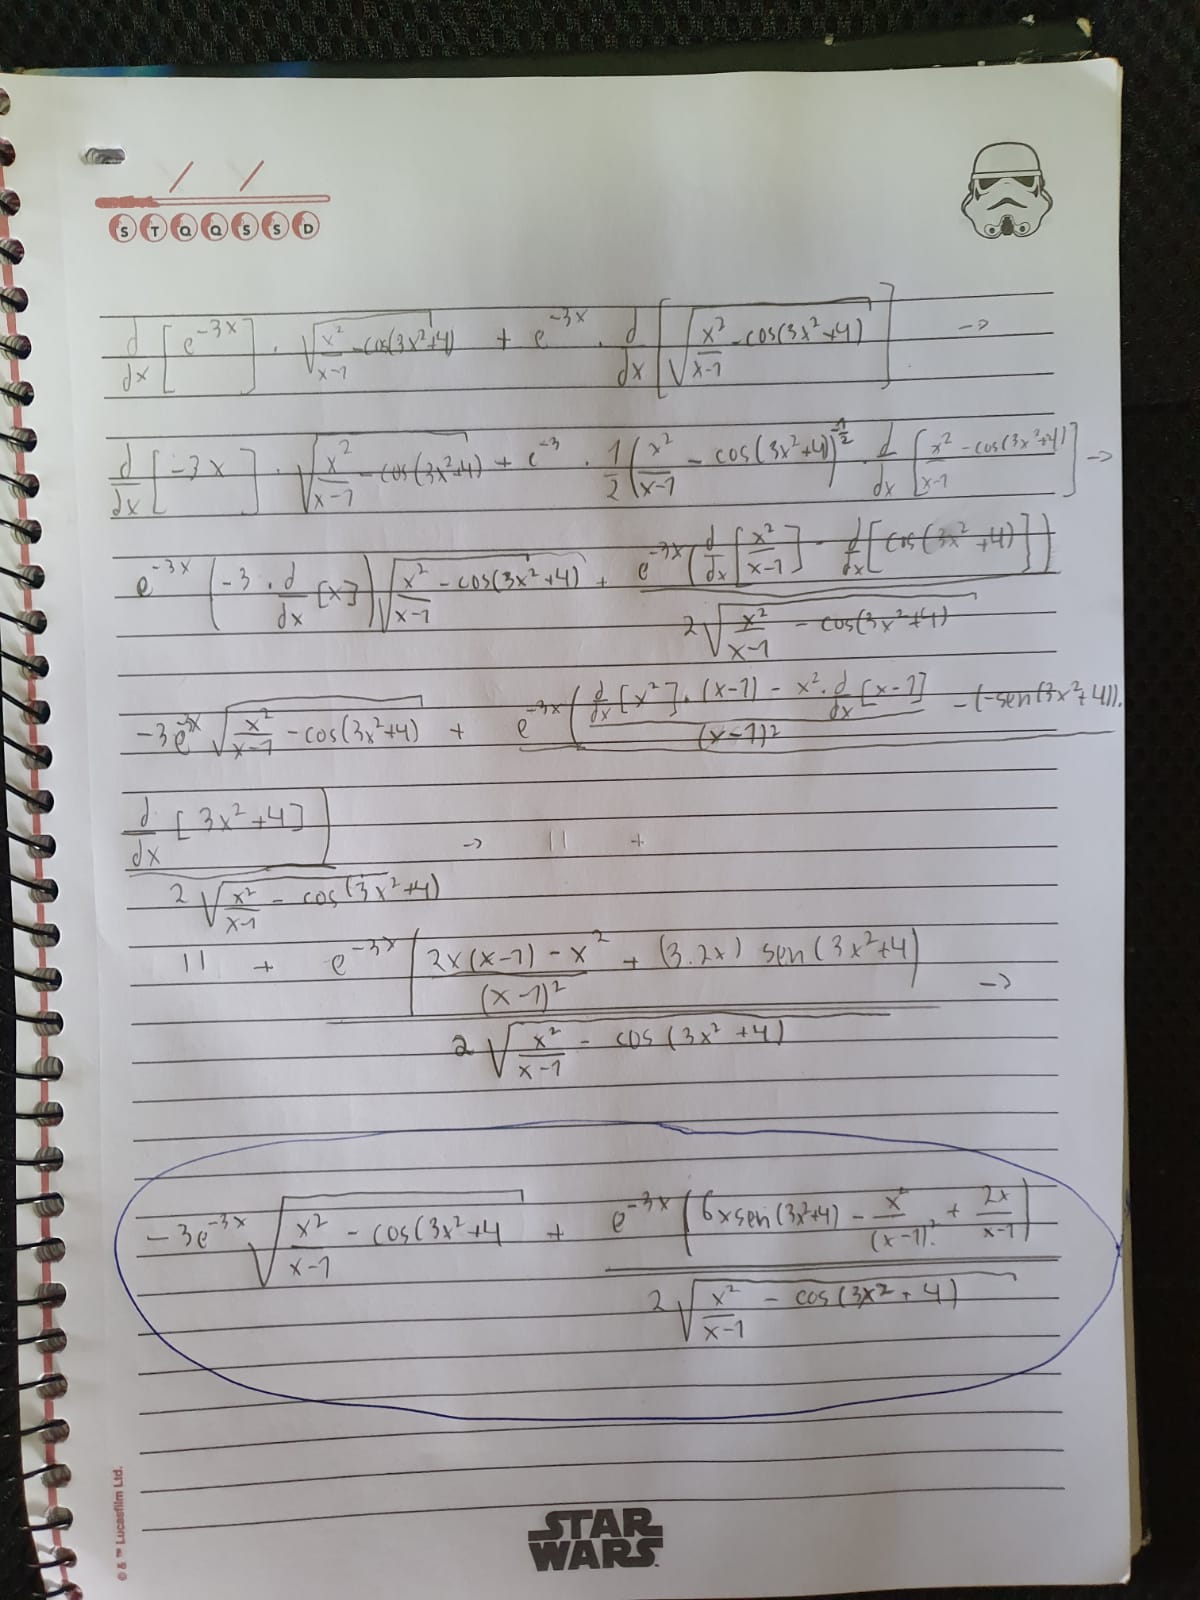 S T Q Q S S D
d/dx [e^{-3x}] · √(x²/x-1 - cos(3x²+4)) + e^{-3x} · d/dx [√(x²/x-1 - cos(3x²+4))] ->
d/dx [-3x] · √(x²/x-1 - cos(3x²+4)) + e^{-3} · 1/2 (x²/x-1 - cos(3x²+4))^{-1/2} · d/dx [x²/x-1 - cos(3x²+4)] ->
e^{-3x} (-3 · d/dx [x]) √(x²/x-1 - cos(3x²+4)) + e^{-3x} (d/dx [x²/x-1] - d/dx [cos(3x²+4)]) / 2√(x²/x-1 - cos(3x²+4))
-3e^{-3x} √(x²/x-1 - cos(3x²+4)) + e^{-3x} (d/dx [x²] · (x-1) - x² · d/dx [x-1] / (x-1)² - (-sen(3x²+4)) ·
d/dx [3x²+4]) / 2√(x²/x-1 - cos(3x²+4)) -> 11 +
11 + e^{-3x} (2x(x-1) - x² / (x-1)² + (3.2x) sen(3x²+4)) / 2√(x²/x-1 - cos(3x²+4)) ->
-3e^{-3x} √(x²/x-1 - cos(3x²+4 + e^{-3x} (6xsen(3x²+4) - x²/(x-1)² + 2x/x-1) / 2√(x²/x-1 - cos(3x²+4))
© & ™ Lucasfilm Ltd.
STAR
WARS